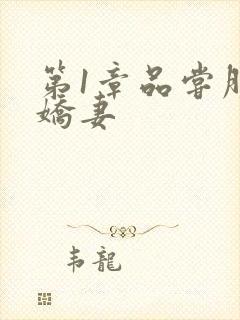 第1章品尝
娇妻
韦龙